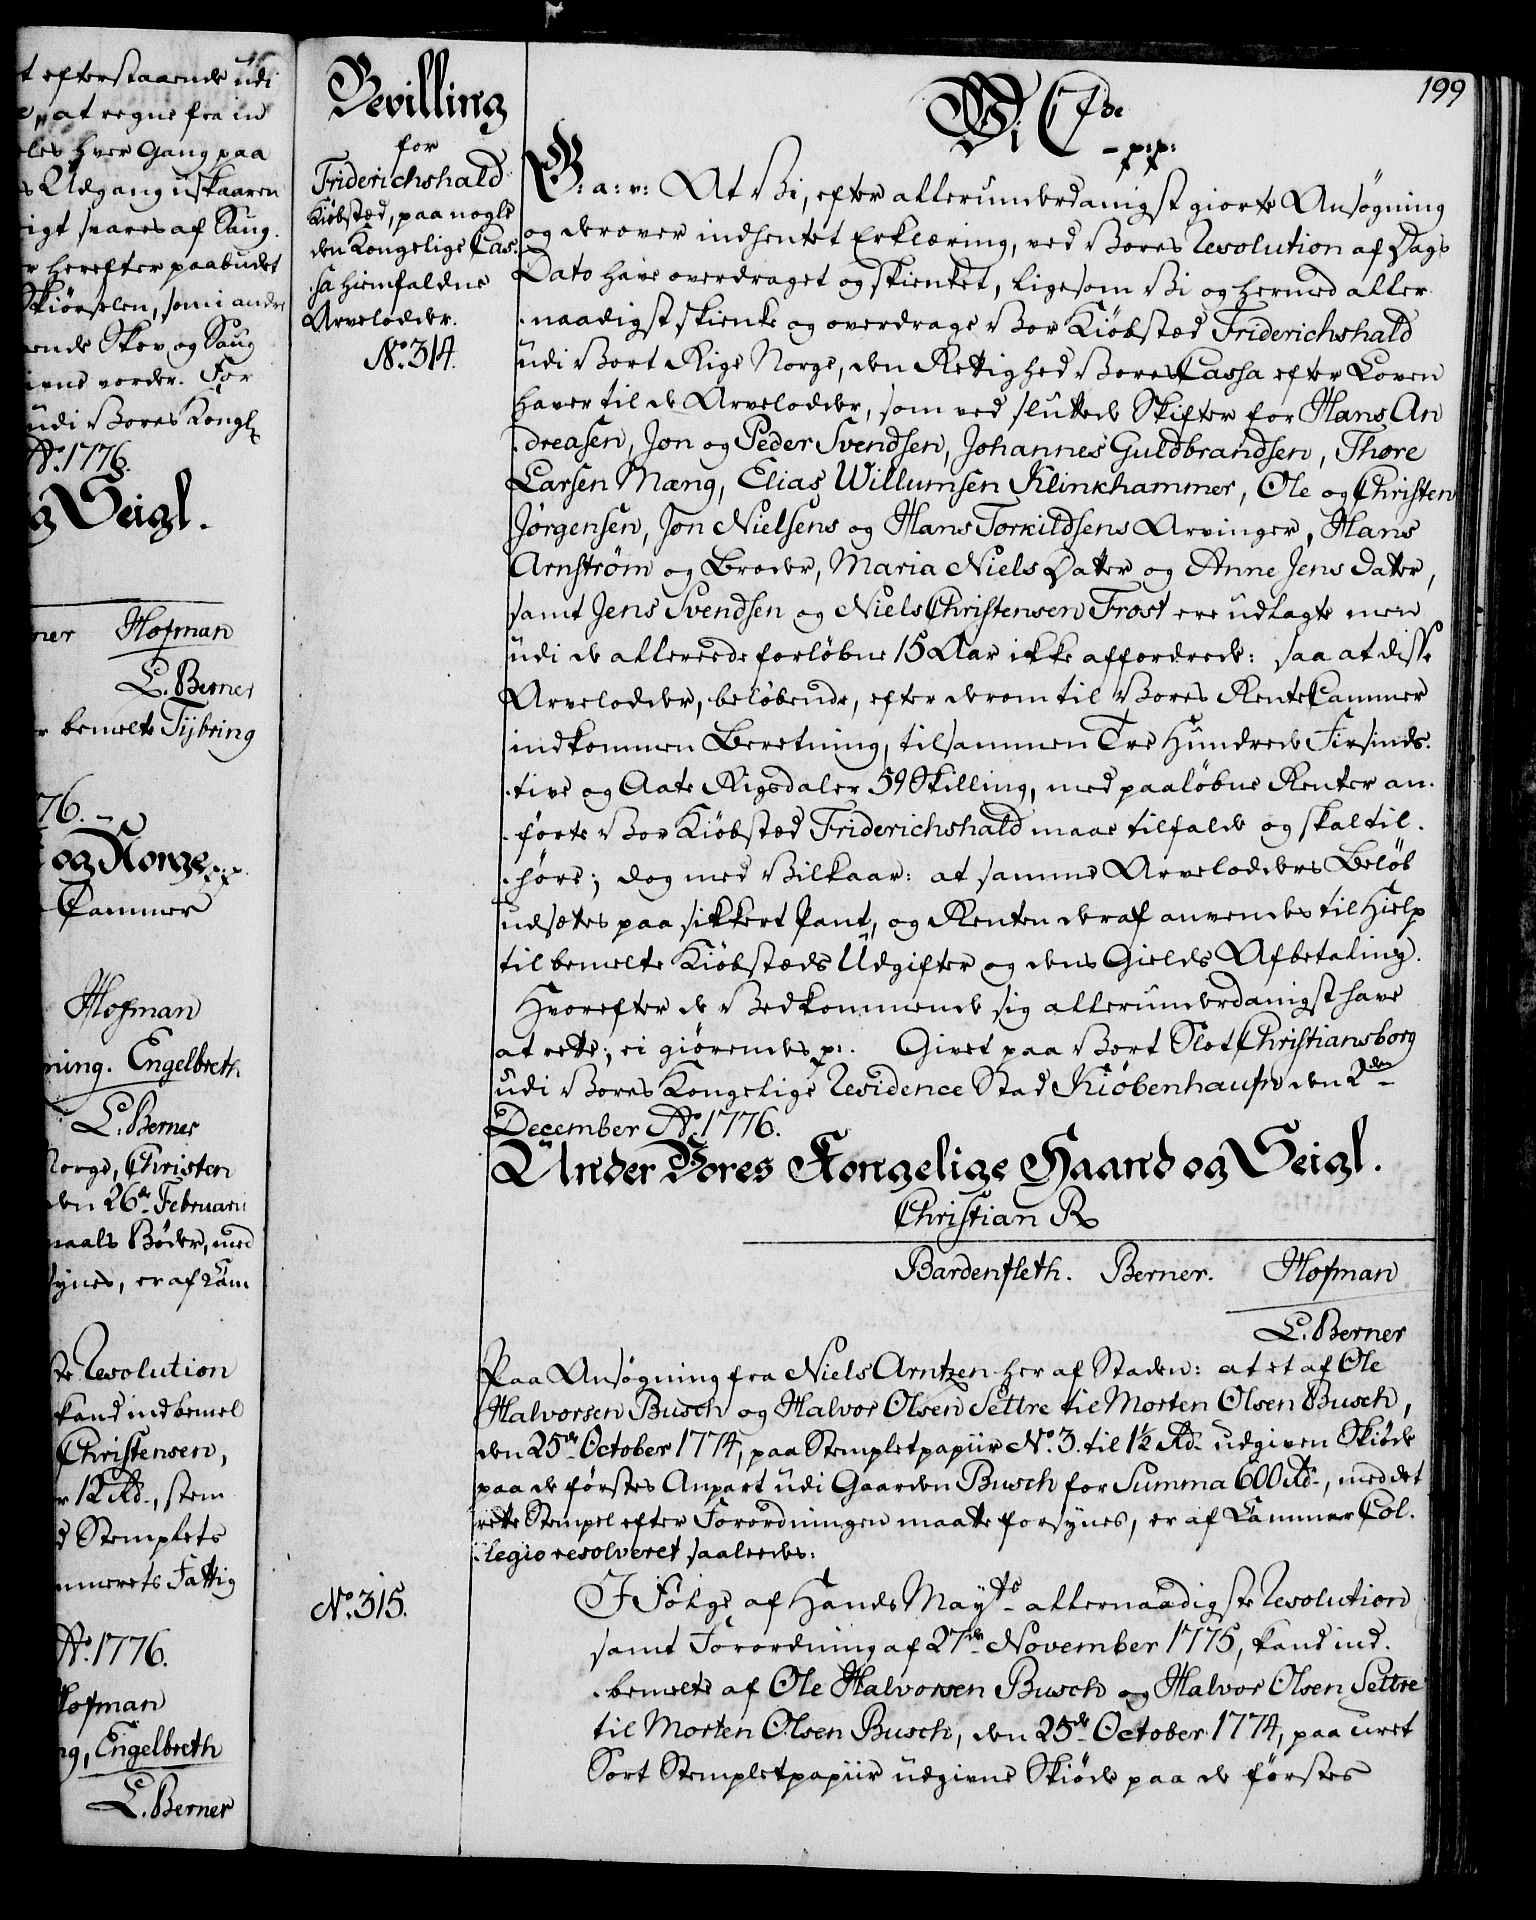 t efterstaaende udi
at regne fra in
eles hver Gang paa
s Udgang uskaaren
rigt svares af Saug.
r herefter paabudet
Skiørselen, som i andre
ende Skov og Saug
ivne vorder. For
udi Vores Kongl
Ao. 1776.
g Seigl.
ner Hofman
L. Berner
r bemelte Tybring
76.
og Norge p:p.
Cammer
Hofman
ning. Engelbreth
L. Berner
Norge, Christen
den 26de Februarii
maals Bøder, med
synes, er af Cam
ste Resolution
kand indbemel
Christensen,
r 12 Rd., stem
d Stemplets
mmerets Fattig
Ao. 1776.
Hofman
ng, Engelbreth
L. Berner
Bevilling
for
Friderichshald
Kiøbstæd, paa nogle
den Kongelige Cas.
.sa hiemfaldne
Arvelodder.
No. 314.
199
Wi C 7de
- p:p:
G: a: v: At Vi, efter allerunderdanigst giorte Ansøgning
og derover indhentet Erklæring, ved Vores Resolution af Dags
Dato have overdraget og skienket, ligesom Vi og hermed aller
.naadigst skienke og overdrage Vor Kiøbstæd Friderichshald
udi Vort Rige Norge, den Rettighed Vores Cassa efter Loven
haver til de Arvelodder, som ved sluttede Skifter for Hans An
.dreasen, Jon og Peder Svendsen, Johannes Guldbrandsen, Thore
Larsen Mæng, Elias Willumsen Klinkhammer, Ole og Christen
Jørgensen, Jon Nielsens og Hans Torkildsens Arvinger, Hans
Arnstrøm og Broder, Maria Niels Datter og Anne Jens Datter,
samt Jens Svendsen og Niels Christensen Frost ere udlagte men
udi de allereede forløbne 15 Aar ikke affordrede: saa at disse
Arvelodder, beløbende, efter derom til Vores RenteCammer
indkommen Beretning, tilsammen Tre Hundrede Firsinds.
.tive og Aate Rigsdaler 59 Skilling, med paaløbne Renter an.
.førte Vor Kiøbstæd Friderichshald maae tilfalde og skal til.
.høre; dog med Vilkaar: at samme Arvelodders Beløb
udsættes paa sikkert Pant, og Renten deraf anvendes til Hielp
til bemelte Kiøbstæds Udgifter og dens Gields Afbetaling.
Hvorefter de Vedkommende sig allerunderdanigst have
at rette; ei giørendes p:. Givet paa Vort Slot Christiansborg
udi Vores Kongelige Residence Stad Kiøbenhaufn den 2den
December Ao. 1776.
Under Vores Kongelige Haand og Seigl.
Christian R
Bardenfleth. Berner. Hofman
L. Berner
Paa Ansøgning fra Niels Arntzen her af Staden: at et af Ole
Halvorsen Busch og Halvor Olsen Settre til Morten Olsen Busch,
den 25de October 1774, paa Stempletpapiir No. 3. til 1½ Rd. udgiven Skiøde
paa de førstes Anpart udi Gaarden Busch for Summa 600 Rd., med det
rette Stempel efter Forordningen maatte forsynes, er af Cammer Col.
.legio resolveret saaledes:
No. 315.
I Følge af Hands Mayts allernaadigste Resolution
samt Forordning af 27de November 1775, kand ind.
.bemelte af Ole Halvorsen Busch og Halvor Olsen Settre
til Morten Olsen Busch, den 25de October 1774, paa uret
Sort Stempletpapiir udgivne Skiøde paa de førstes